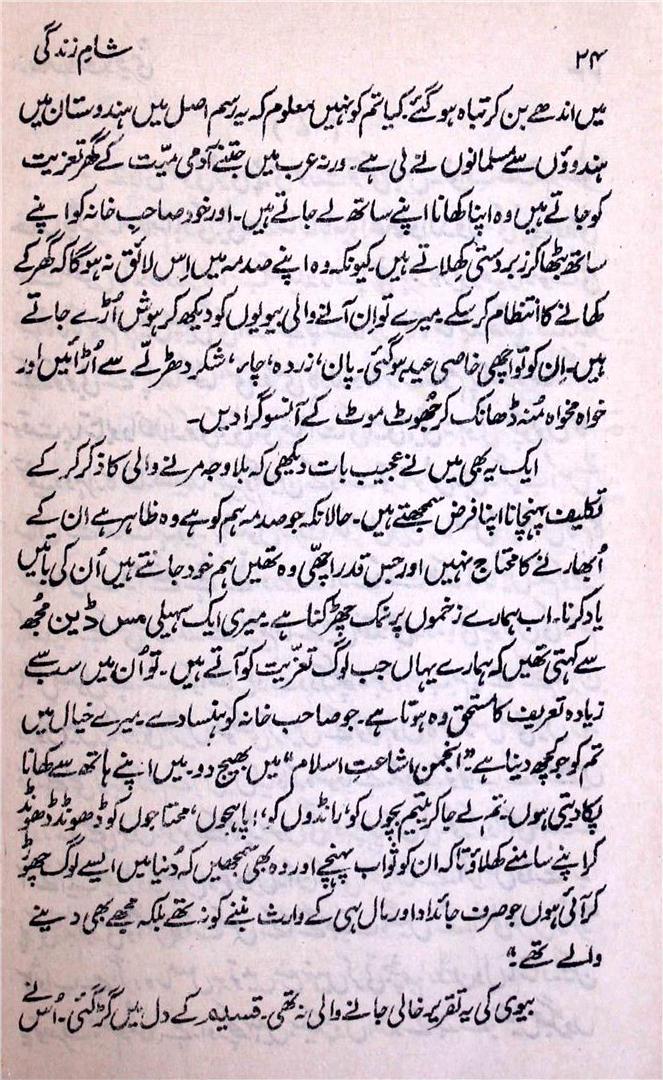 ۲۴
شامِ زندگی
میں اندھے بن کر تباہ ہو گئے. کیا تم کو نہیں معلوم کہ یہ رسم اصل میں ہندوستان میں
ہندوؤں سے مسلمانوں نے لی ہے۔ ورنہ عرب میں جتنے آدمی میّت کے گھر تعزیت
کو جاتے ہیں وہ اپنا کھانا اپنے ساتھ لے جاتے ہیں۔ اور خود صاحبِ خانہ کو اپنے
ساتھ بٹھا کر زبردستی کھلاتے ہیں۔ کیونکہ وہ اپنے صدمہ میں اِس لائق نہ ہوگا کہ گھر کے
کھانے کا انتظام کر سکے۔ میرے تو اِن آنے والی بیویوں کو دیکھ کر ہوش اُڑے جاتے
ہیں۔ اِن کو تو اچھی خاصی عید ہو گئی۔ پان، زردہ، چاء، شکر دھڑلّے سے اُڑائیں اور
خواہ مخواہ مُنہ ڈھانک کر جُھوٹ موٹ کے آنسو گرا دیں۔
ایک یہ بھی میں نے عجیب بات دیکھی کہ بلا وجہ مرنے والی کا ذکر کر کے
تکلیف پہنچانا اپنا فرض سمجھتے ہیں۔ حالانکہ جو صدمہ ہم کو ہے وہ ظاہر ہے ان کے
اُبھارنے کا محتاج نہیں اور جس قدر اچھّی وہ تھیں ہم خود جانتے ہیں اُن کی باتیں
یاد کرنا۔ اب ہمارے زخموں پر نمک چھڑکنا ہے۔ میری ایک سہیلی مس ڈین مُجھ
سے کہتی تھیں کہ ہمارے یہاں جب لوگ تعزّیت کو آتے ہیں۔ تو اُن میں سب سے
زیادہ تعریف کا مستحق وہ ہوتا ہے۔ جو صاحب خانہ کو ہنسا دے۔ میرے خیال میں
تم کو جو کچھ دینا ہے۔ "انجمن اشاعتِ اسلام" میں بھیج دو۔ میں اپنے ہاتھ سے کھانا
پکا دیتی ہوں۔ تم لے جا کر یتیم بچوں کو، رانڈوں کو، اپاہجوں، محتاجوں کو ڈھونڈ ڈھونڈ
کر اپنے سامنے کھلاؤ تاکہ ان کو ثواب پہنچے اور وہ بھی سمجھیں کہ دُنیا میں ایسے لوگ چھوڑ
کر آئی ہوں جو صرف جائداد اور مال ہی کے وارث بننے کو نہ تھے بلکہ مجھے بھی دینے
والے تھے۔"
بیوی کی یہ تقریر خالی جانے والی نہ تھی۔ قسیم کے دل میں گڑ گئی۔ اُس نے